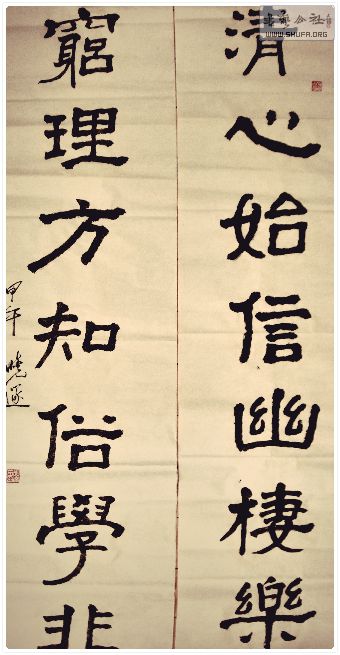 清心始信幽棲樂
窮理方知俗學非
甲午 曉遂
WWW.SHUFA.ORG